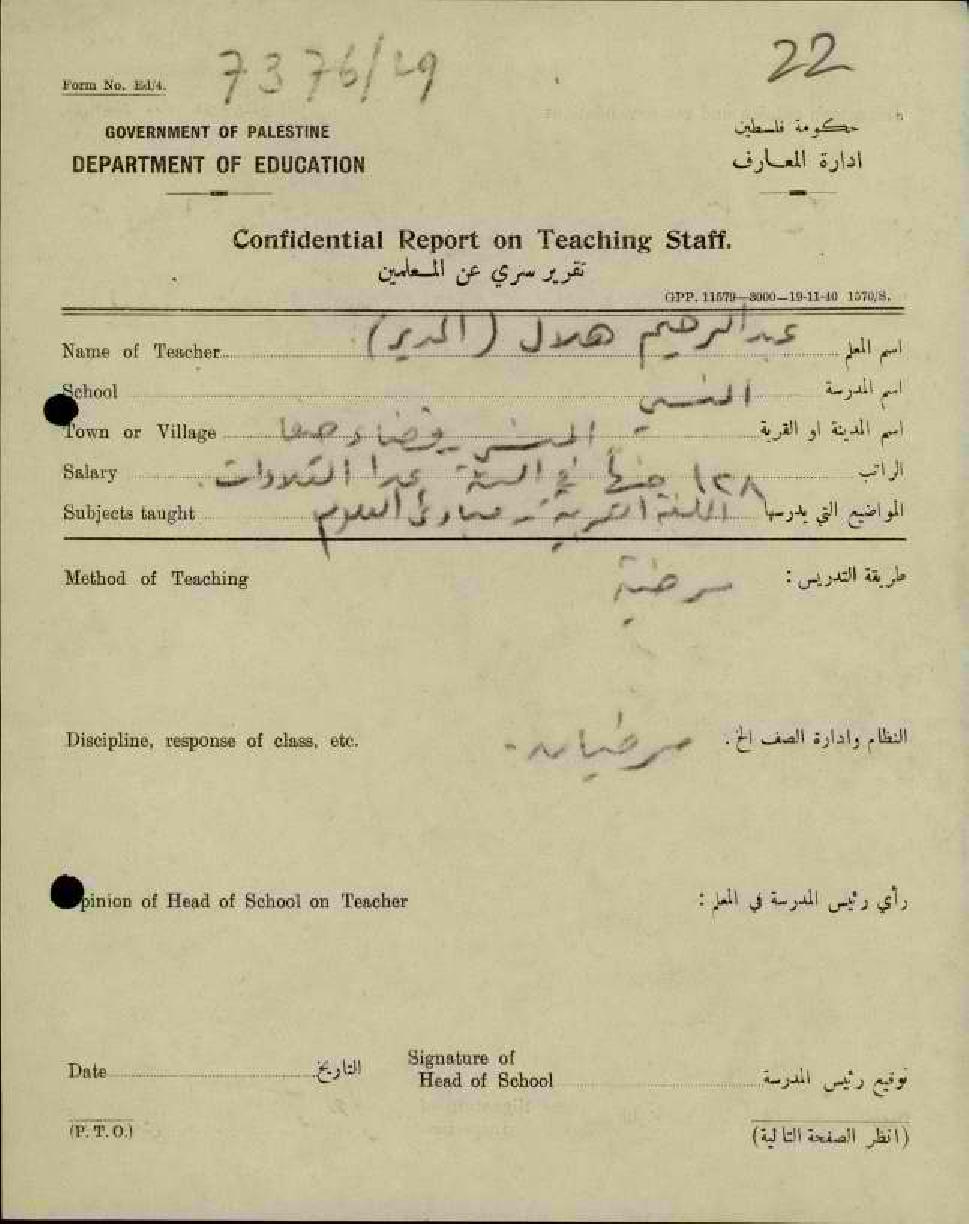 7376/29
22
Form No. Ed/4.
GOVERNMENT OF PALESTINE
حكومة فلسطين
DEPARTMENT OF EDUCATION
ادارة المعارف
Confidential Report on Teaching Staff.
تقرير سري عن المعلمين
GPP. 11579—3000—19-11-40 1570/S.
Name of Teacher عبد الرحيم هلال (المدير) اسم المعلم
School اسم المدرسة
Town or Village قضاء حيفا اسم المدينة او القرية
Salary ١٢٨ جنيهاً في السنة عدا العلاوات . الراتب
Subjects taught اللغة العربية - مبادئ العلوم المواضيع التي يدرسها
Method of Teaching مرضية طريقة التدريس :
Discipline, response of class, etc. مرضيان . النظام وادارة الصف الخ .
pinion of Head of School on Teacher رأي رئيس المدرسة في المعلم :
Date التاريخ Signature of
Head of School توقيع رئيس المدرسة
(P. T. O.) (انظر الصفحة التالية)